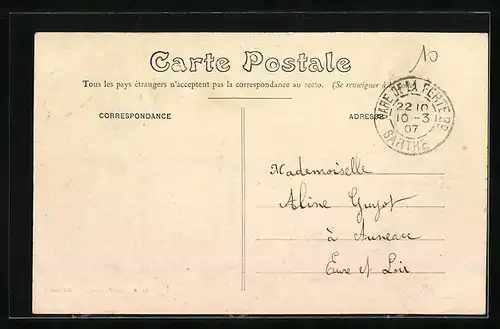 10
Carte Postale
Tous les pays étrangers n'acceptent pas la correspondance au recto. (Se renseigner à
CORRESPONDANCE
ADRESSE
GARE DE LA FERTE BD
22 10
10 -3
07
SARTHE
Mademoiselle
Aline Guyot
à Auneau
Eure et Loir